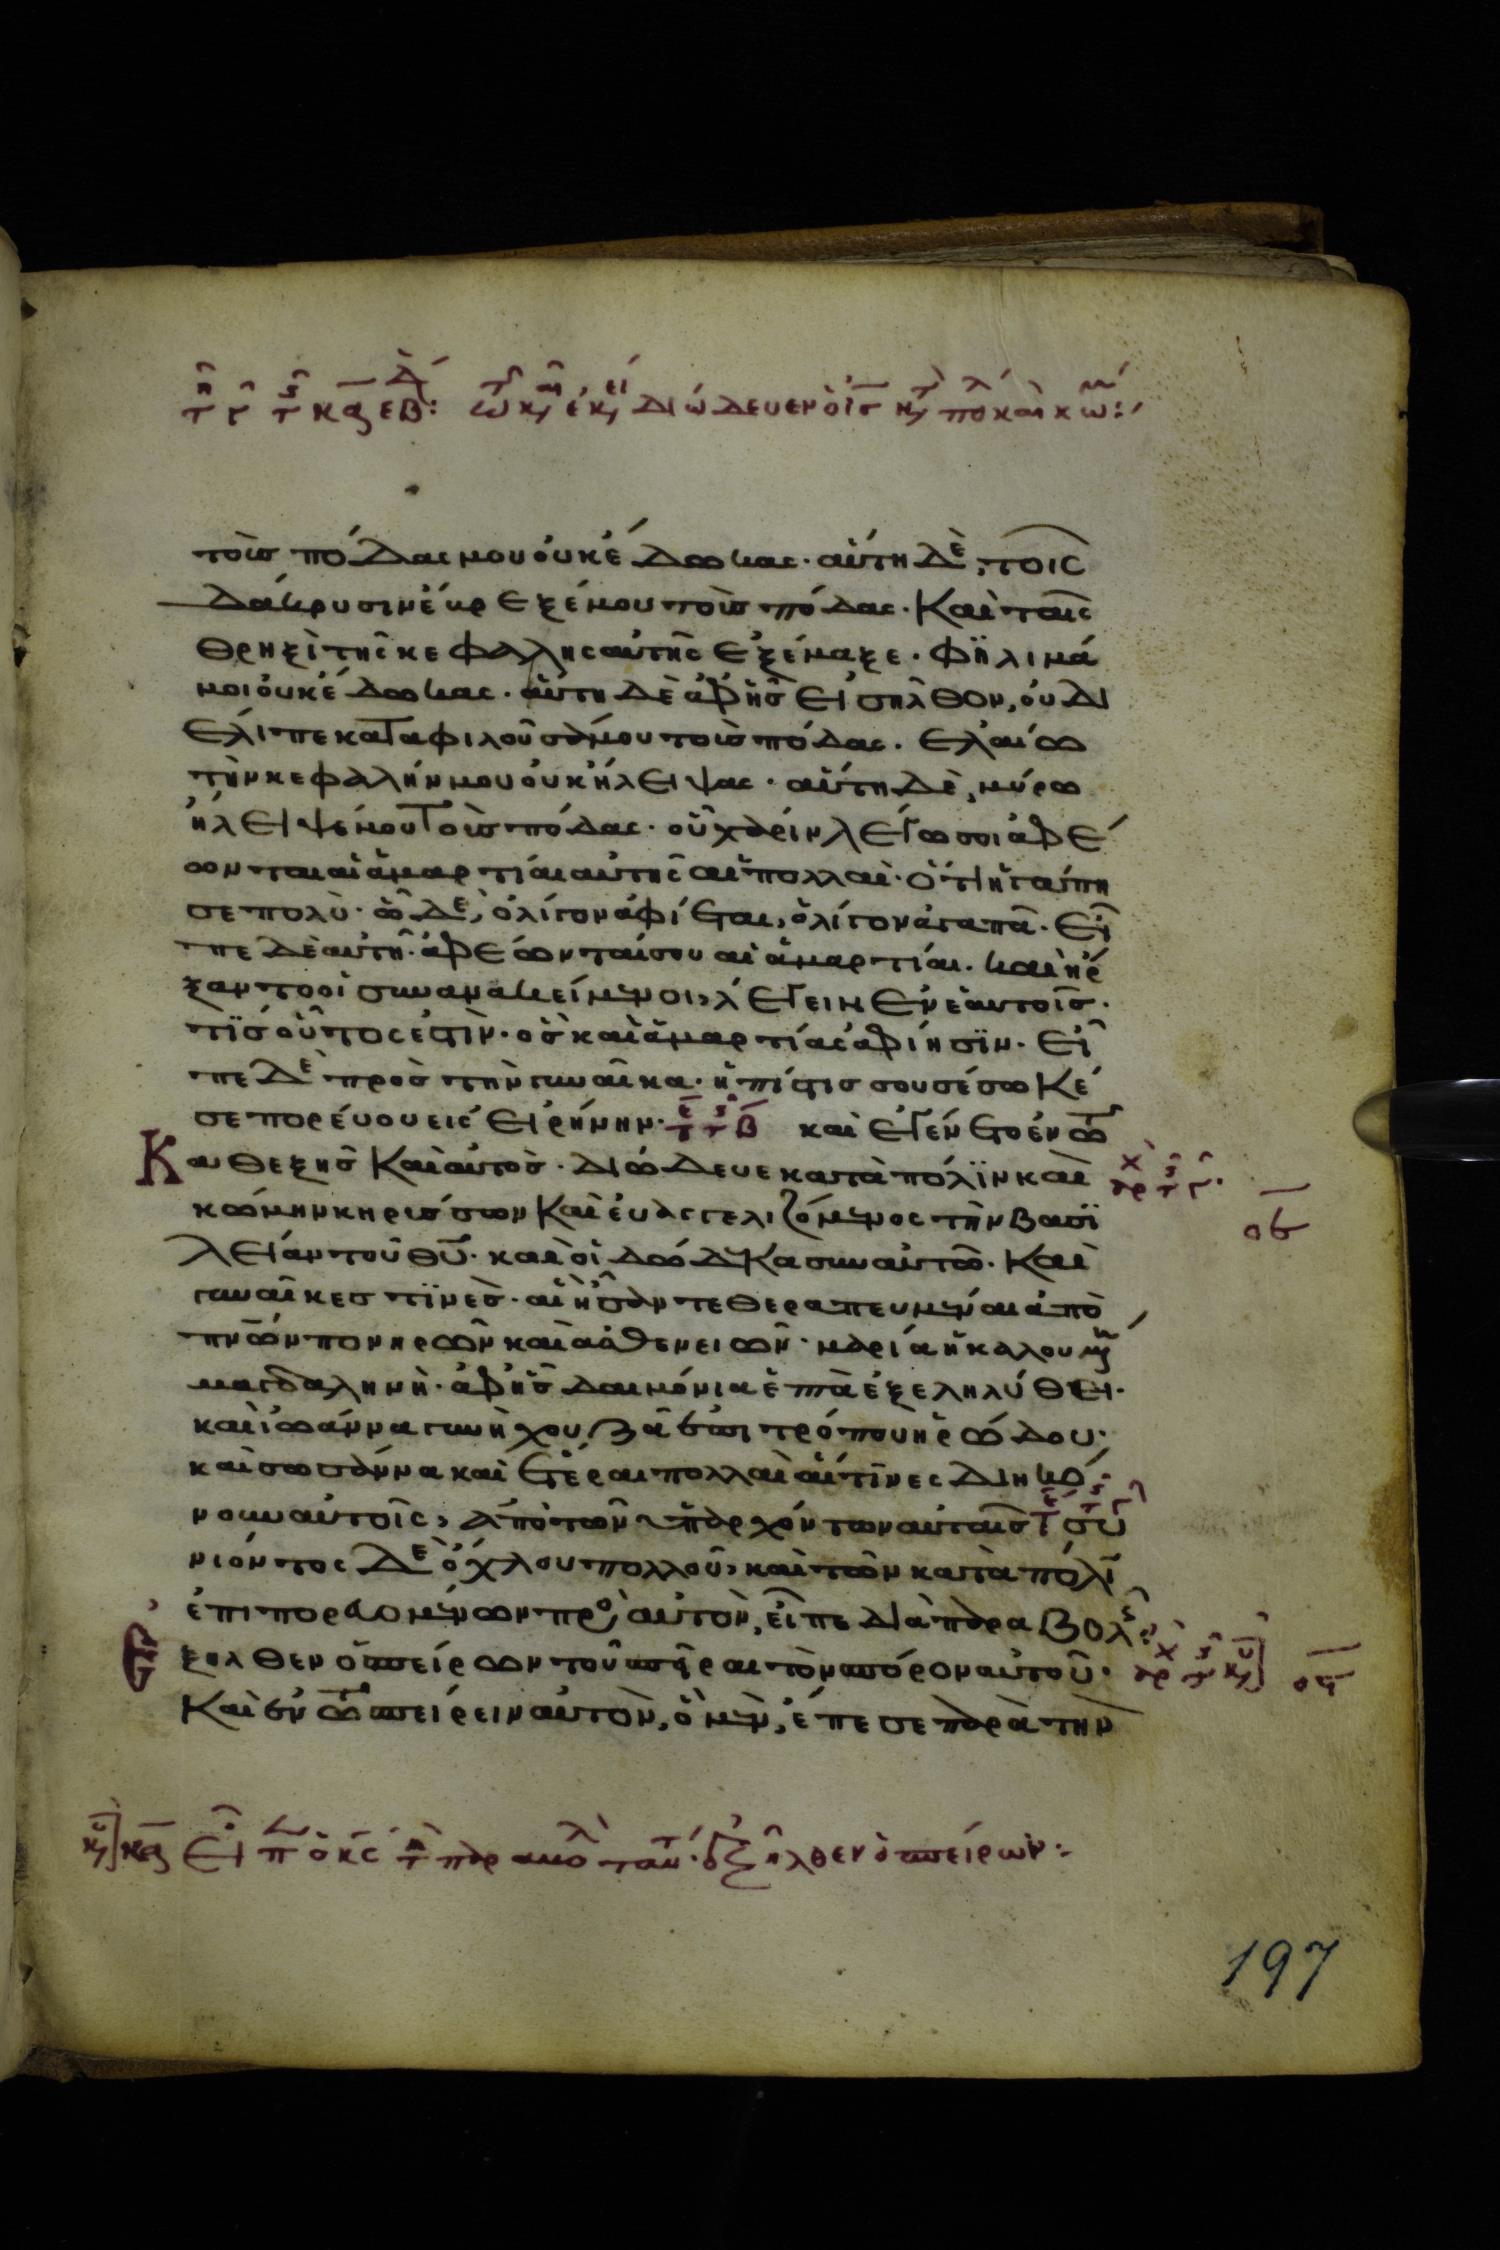 τοὺς πόδας μου οὐκ έδωκας· αὕτη δὲ, τοῖς
δάκρυσιν έβρεξέ μου τοὺς πόδας. Καὶ ταῖς
θρηξὶ τῆς κεφαλῆς αὐτῆς ἐξέμαξε. φῆλιμά
μοι οὐκ έδωκας. αὕτη δὲ ἀφῆς εἰσῆλθον, οὐ δι
έλιπε καταφιλοῦσά μου τοὺς πόδας. ἐλαίω
τὴν κεφαλήν μου οὐκ ἤλειψας. αὕτη δὲ, μύρω
ἤλειψέ μου τοὺς πόδας. οὗ χάριν λέγω σοι ἀφέ
ωνται αἱ ἁμαρτίαι αὐτῆς αἱ πολλαὶ. ὅτι ἠγάπη
σε πολὺ. ὧ δὲ, ὀλίγον ἀφίεται, ὀλίγον ἀγαπᾶ. εἶ
πε δὲ αὐτῆ. ἀφέωνταί σου αἱ ἁμαρτίαι. καὶ ἤρ
ξαντο οἱ συνανακείμενοι, λέγειν ἐν ἑαυτοῖς.
τῒς οὗτος ἐστὶν. ὃς καὶ ἁμαρτίας ἀφίησϊν. εἶ
πε δὲ πρὸς τὴν γυναῖκα. ἡ πίστις σου σέσωκέ
σε πορεύου εἰς εἰρήνην. καὶ ἐγένετο ἐν τῶ
Καθεξῆς καὶ αὐτὸς. διώδευε κατὰ πόλϊν καὶ
κώμην κηρύσσων καὶ εὐαγγελιζόμενος τὴν βασϊ
λείαν τοῦ θυ. καὶ οἱ δώδεκα σὺν αὐτῶ. καὶ
γυναῖκες τϊνὲς. αἳ ἦσαν τεθεραπευμέναι ἀπὸ
πνων πονηρῶν καὶ ἀσθενειῶν. μαρία ἡ καλουμένη
μαγδαληνὴ. ἀφῆς δαιμόνια ἑπτὰ ἐξεληλύθει.
καὶ ἰωάννα γυνὴ χουζᾶ ἐπιτρόπου ἡρώδου.
καὶ σωσάννα καὶ ἕτεραι πολλαὶ αἵτινες διηκό
νουν αὐτοῖς, ἀπὸ τῶν ὑπαρχόντων αὐταῖς συ
νιόντος δὲ ὄχλου πολλοῦ, καὶ τῶν κατὰ πόλϊ
ἐπιπορευομένων πρὸς αὐτὸν, εἶπε διὰ παραβολῆς
Ἐξῆλθεν ὁ σπείρων τοῦ σπεῖραι τὸν σπόρον αὐτοῦ.
Καὶ ἐν τῶ σπείρειν αὐτὸν, ὃ μὲν, έπεσε παρὰ τὴν
197